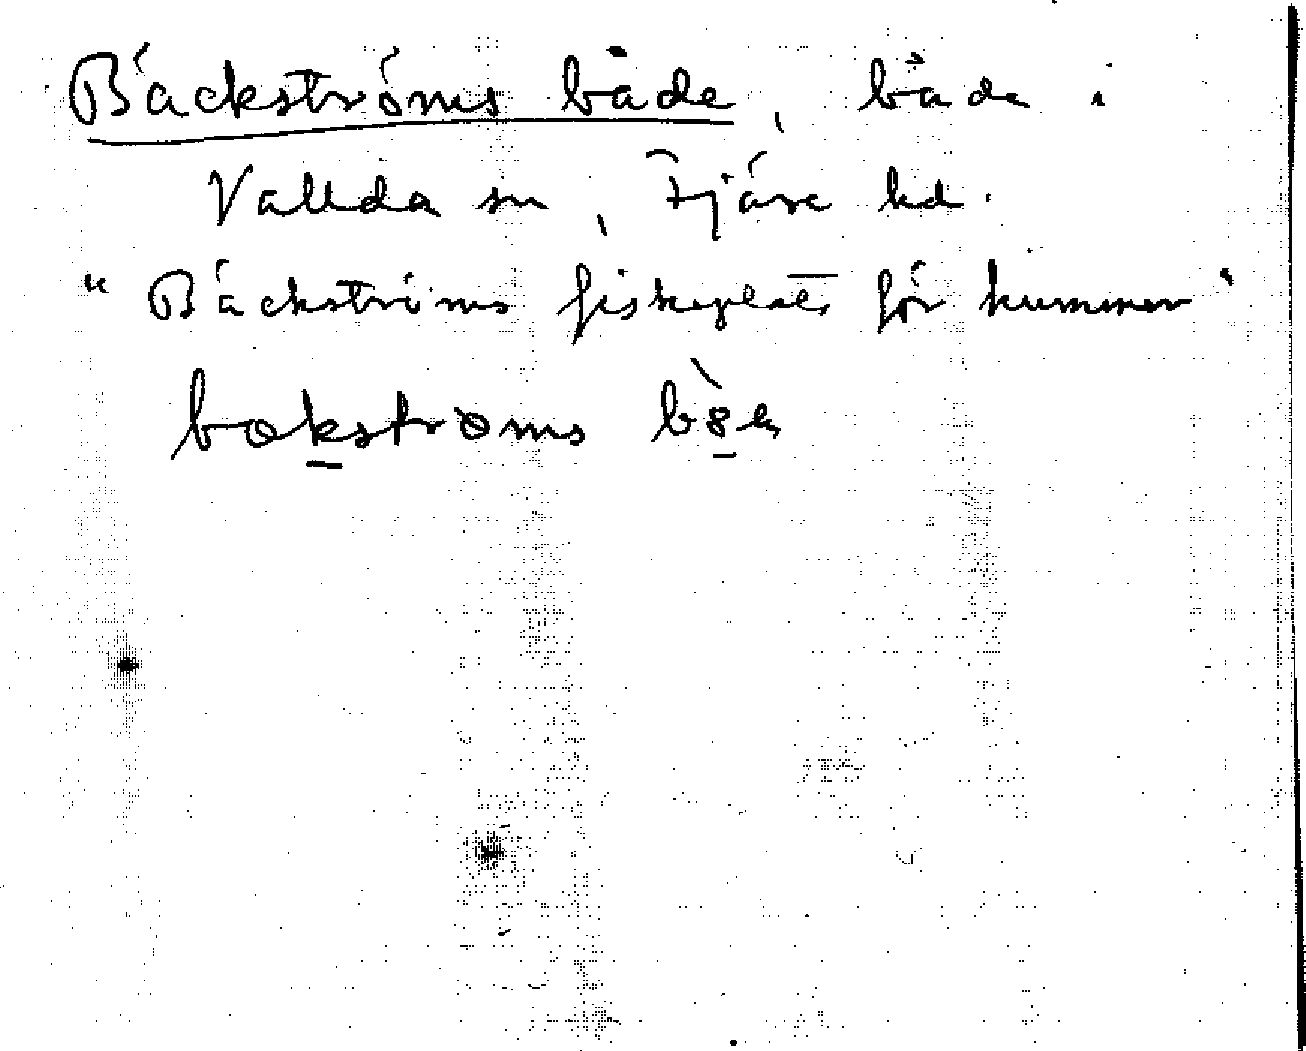 Bäckströms både, båda i
Vallda sn, Fjäre hd.
"Bäckströms fiskeplats för hummer"